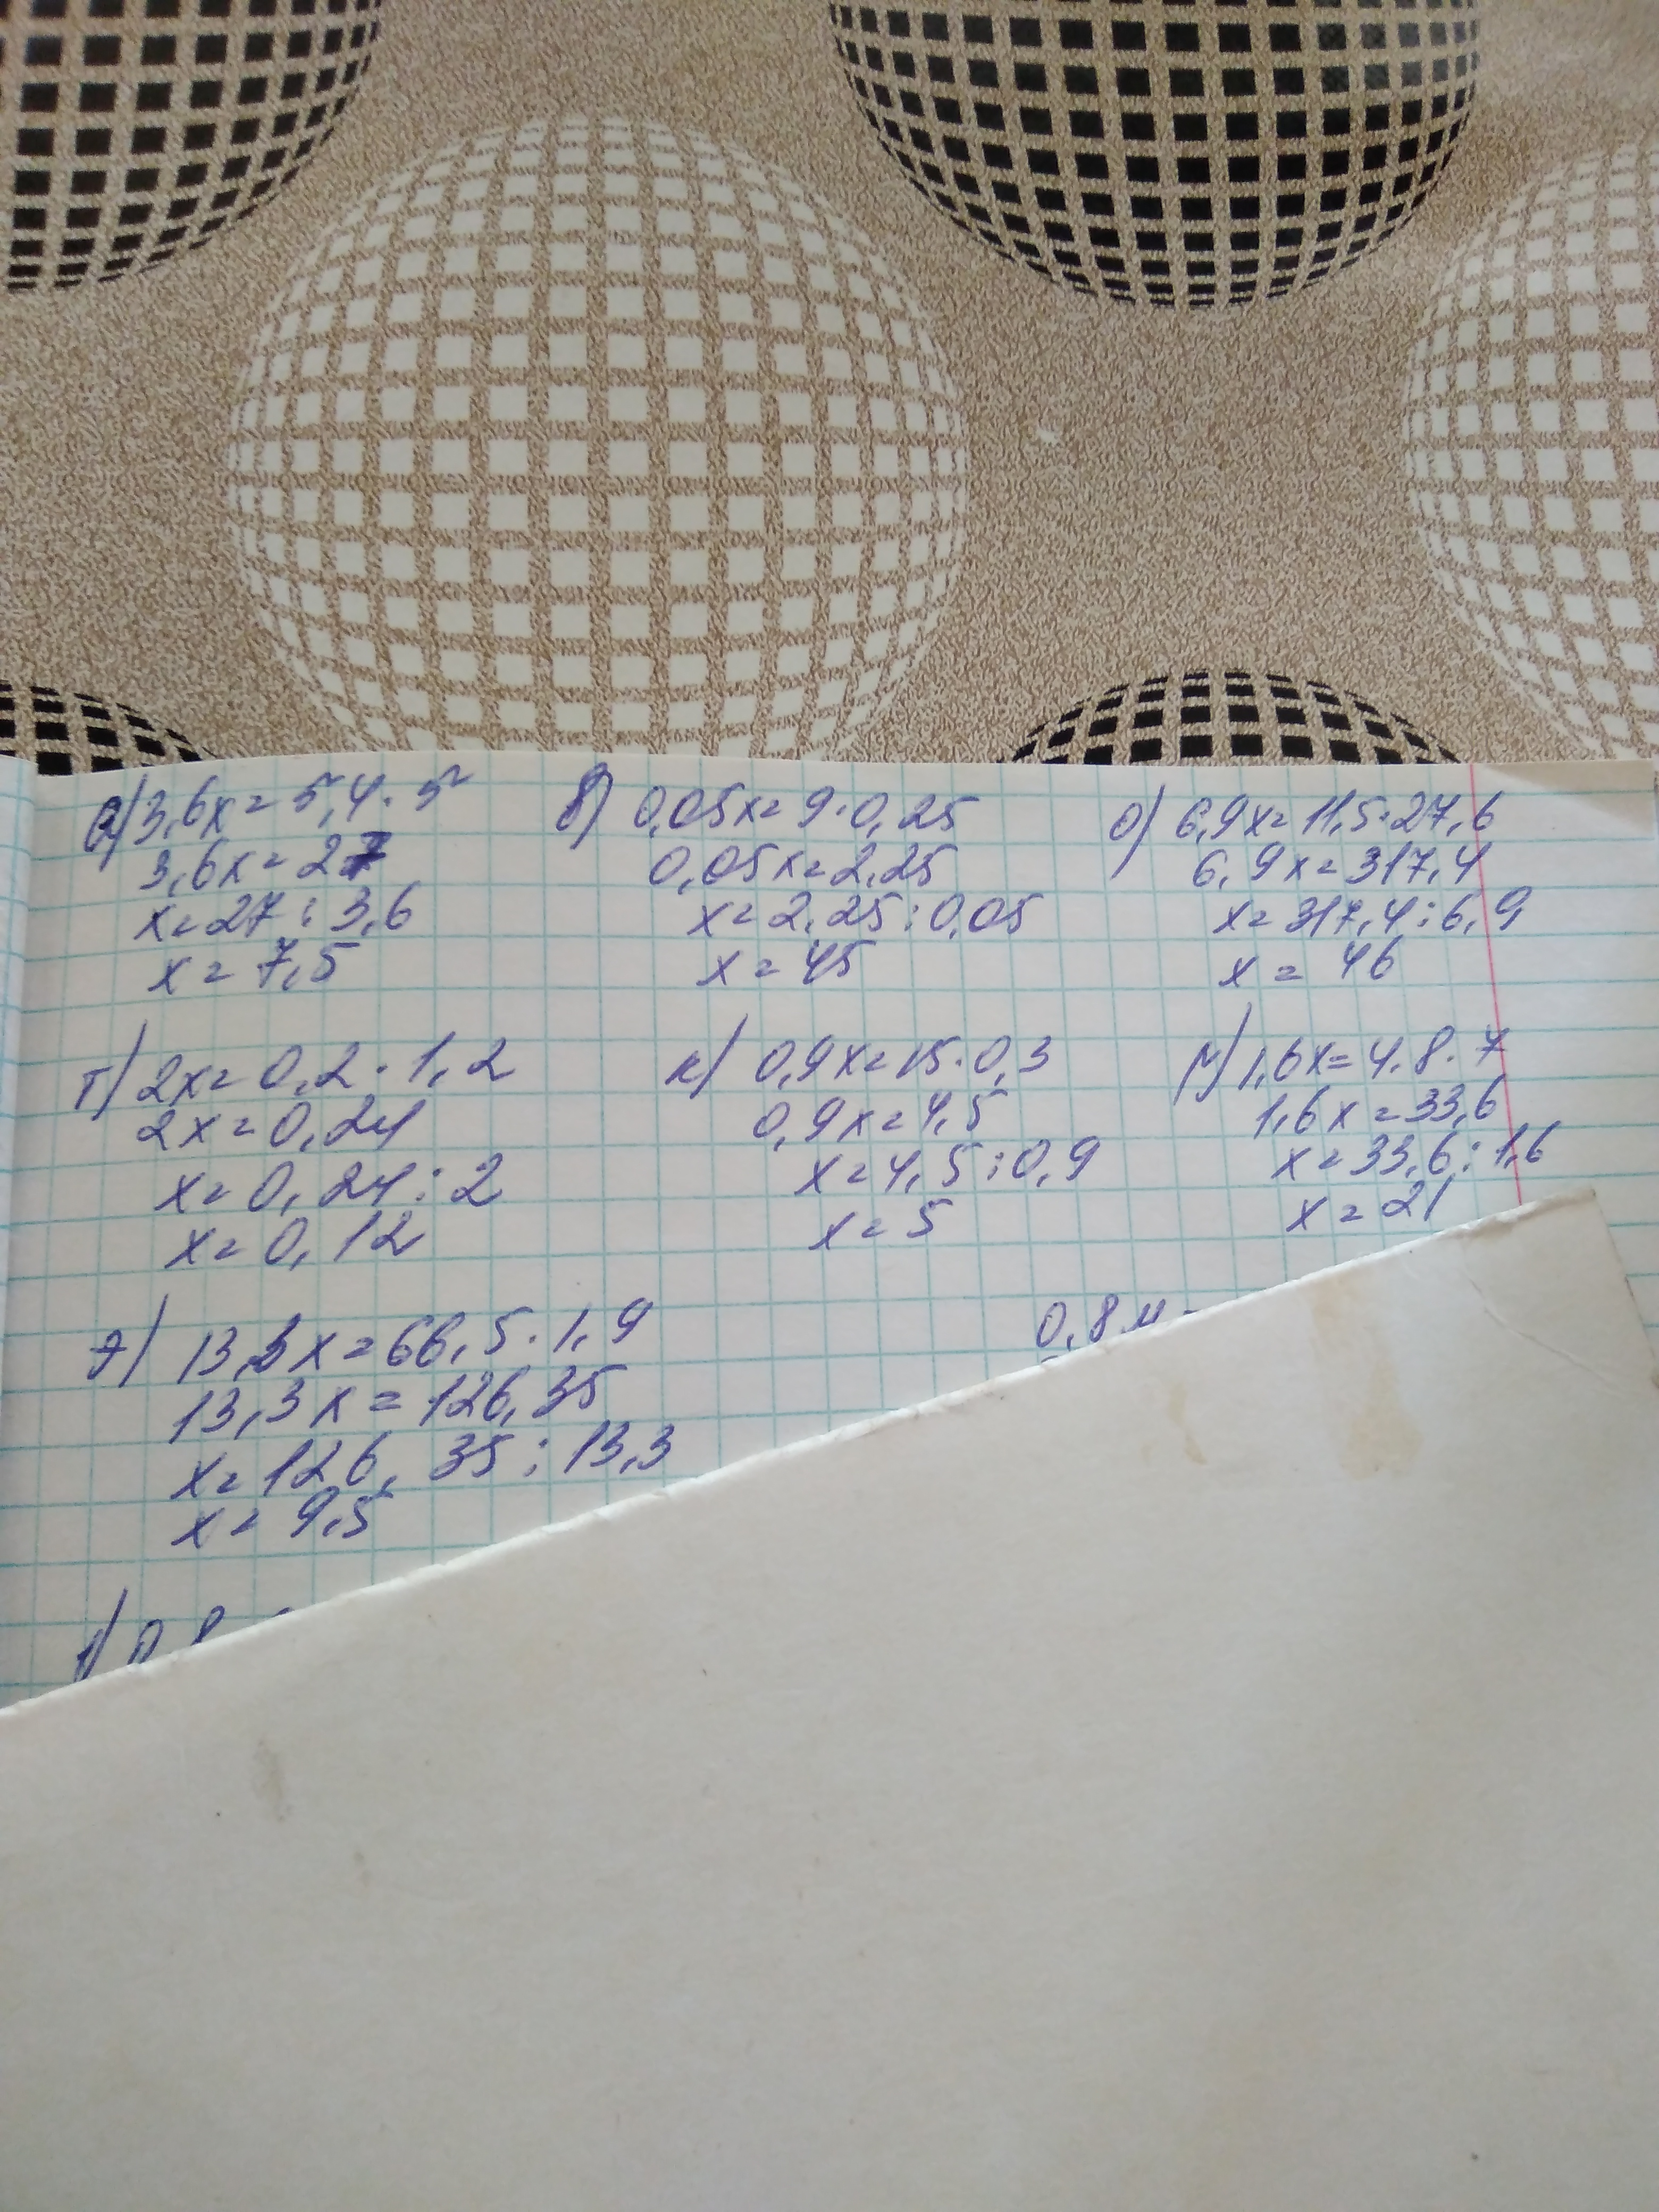 а) 3,6x = 5,4 · 5
3,6x = 27
x = 27 : 3,6
x = 7,5
б) 0,05x = 9 · 0,25
0,05x = 2,25
x = 2,25 : 0,05
x = 45
о) 6,9x = 11,5 · 27,6
6,9x = 317,4
x = 317,4 : 6,9
x = 46
т) 2x = 0,2 · 1,2
2x = 0,24
x = 0,24 : 2
x = 0,12
к) 0,9x = 15 · 0,3
0,9x = 4,5
x = 4,5 : 0,9
x = 5
м) 1,6x = 4.8 · 7
1,6x = 33,6
x = 33,6 : 1,6
x = 21
э) 13,3x = 66,5 · 1,9
13,3x = 126,35
x = 126,35 : 13,3
x = 9,5
0,8 м